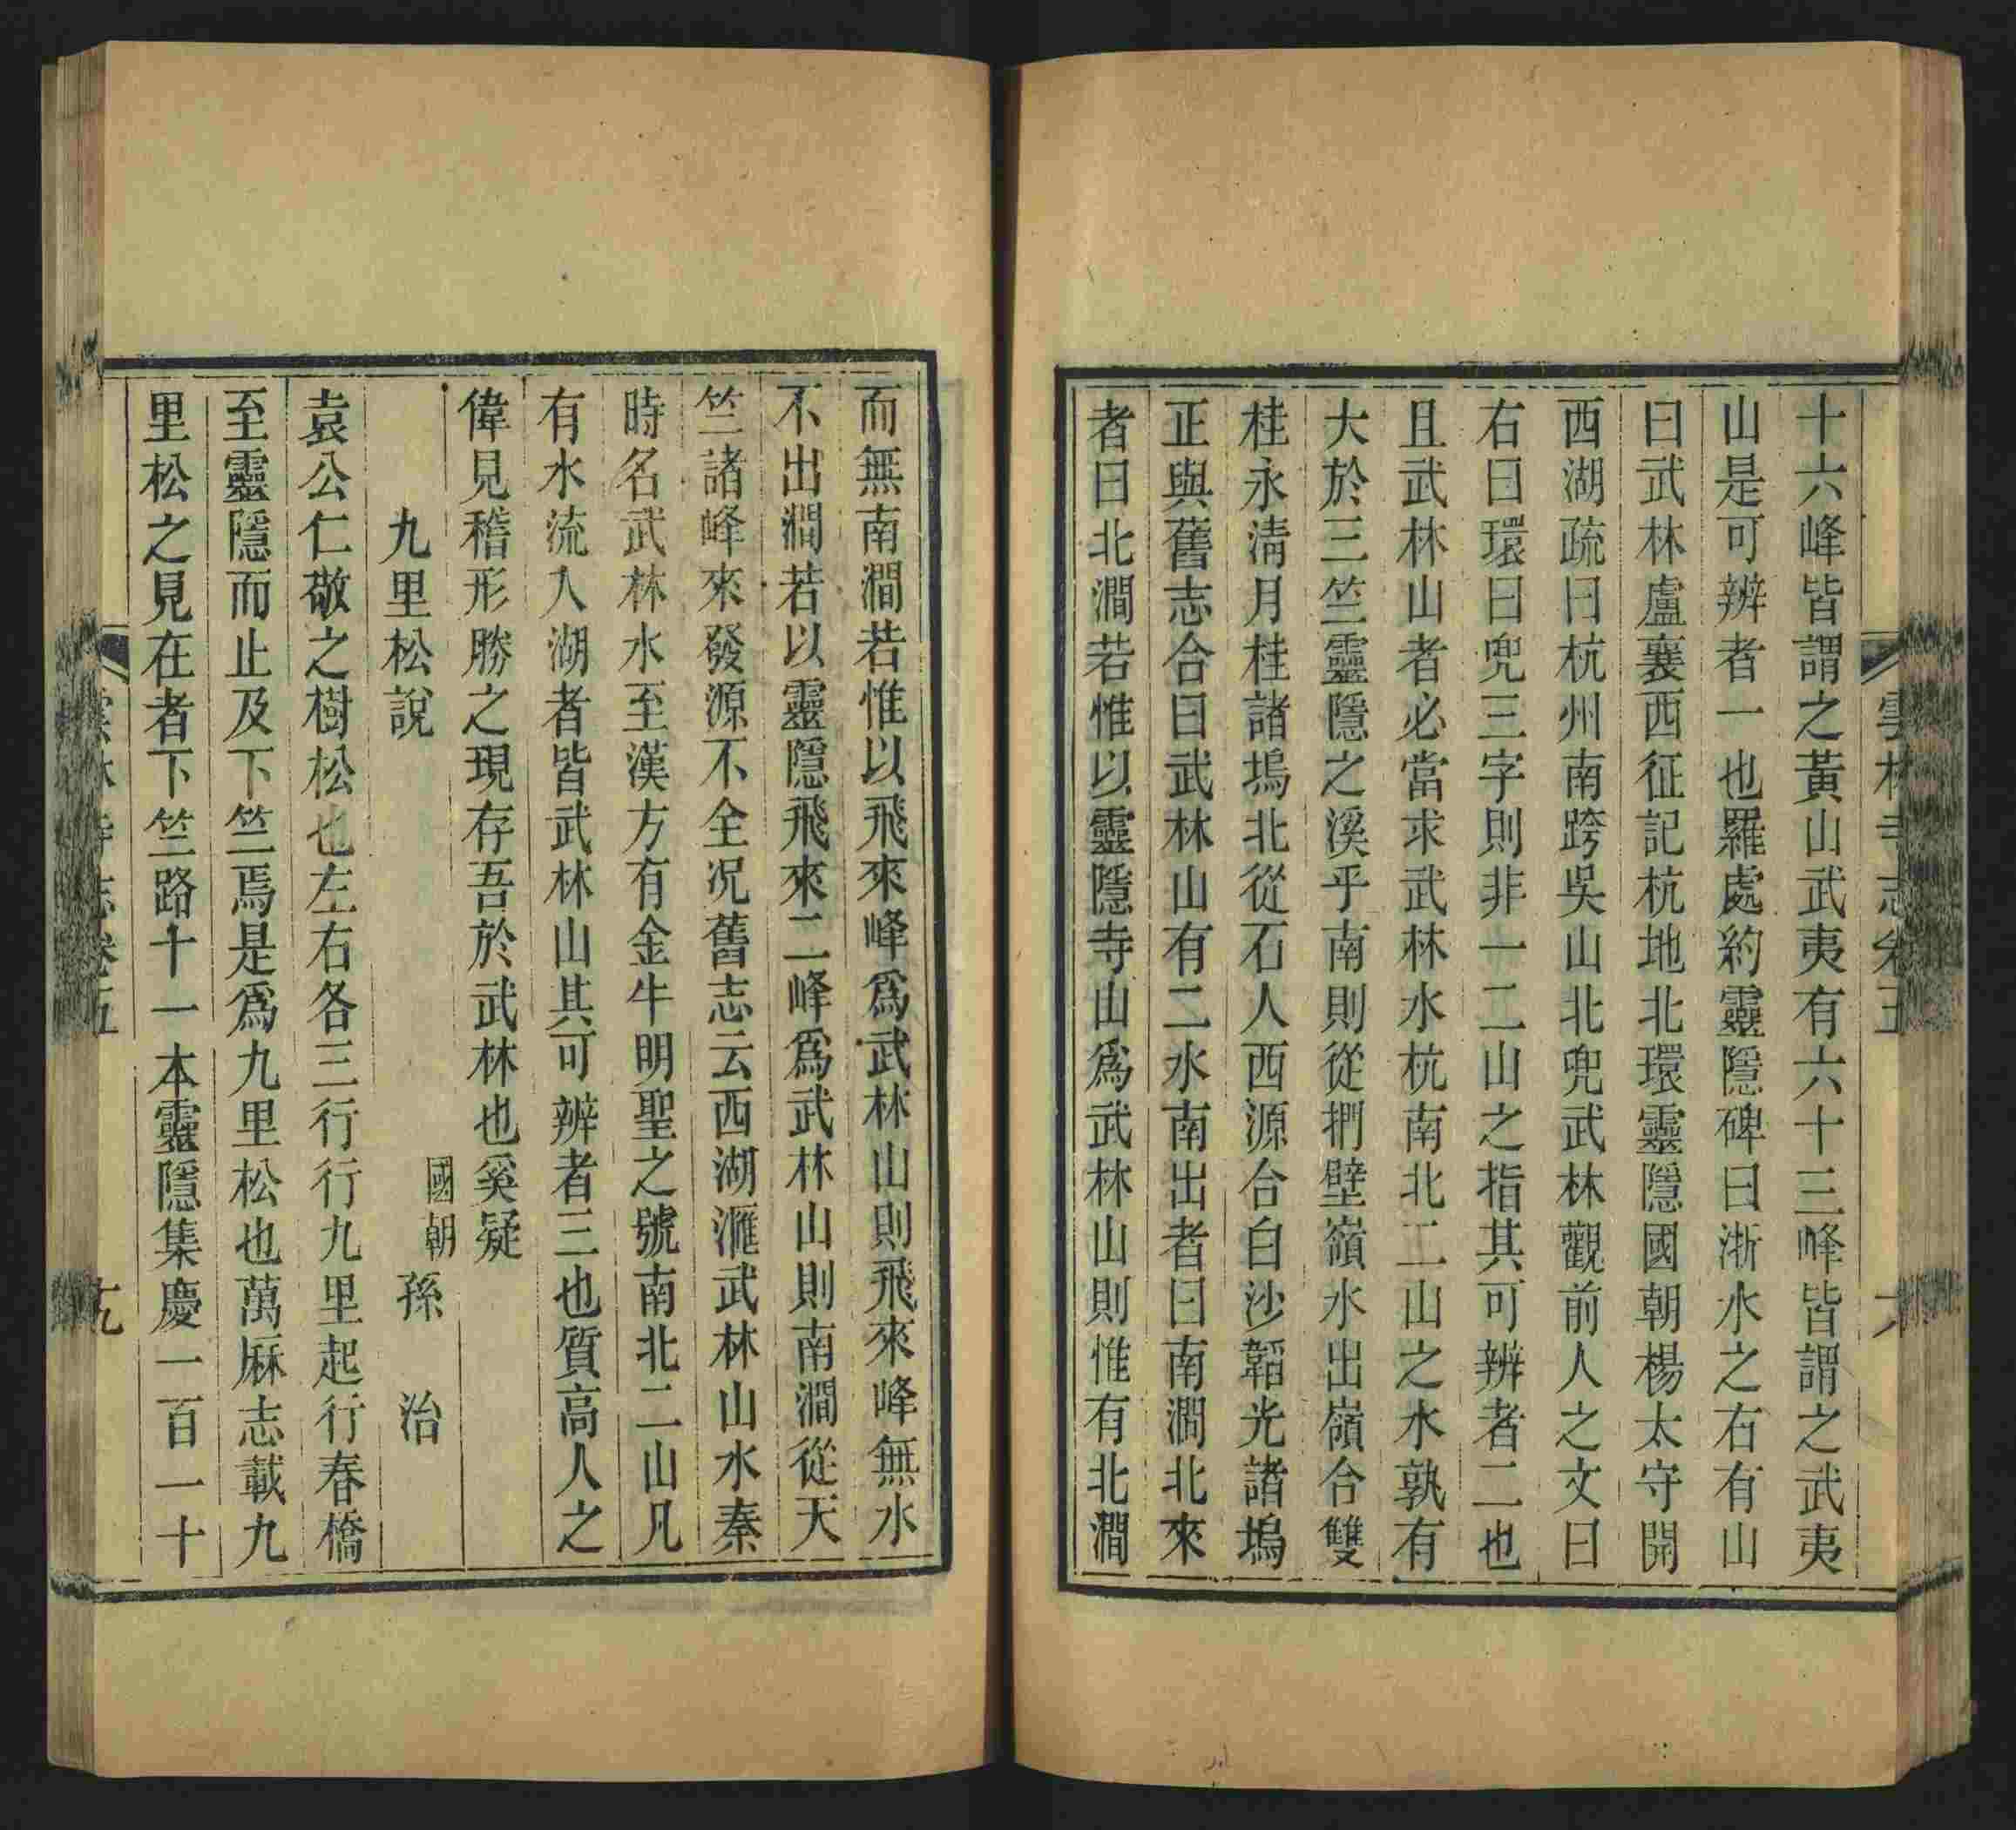 十六峰皆謂之黃山武夷有六十三峰皆謂之武夷
山是可辨者一也羅處約靈隱碑曰浙水之右有山
曰武林盧襄西征記杭地北環靈隱國朝楊太守開
西湖疏曰杭州南跨吳山北兜武林觀前人之文曰
右曰環曰兜三字則非一二山之指其可辨者二也
且武林山者必當求武林水杭南北二山之水孰有
大於三竺靈隱之溪乎南則從捫壁嶺水出嶺合雙
桂永淸月桂諸塢北從石人西源合白沙韜光諸塢
正與舊志合曰武林山有二水南出者曰南澗北來
者曰北澗若惟以靈隱寺山爲武林山則惟有北澗
而無南澗若惟以飛來峰爲武林山則飛來峰無水
不出澗若以靈隱飛來二峰爲武林山則南澗從天
竺諸峰來發源不全况舊志云西湖滙武林山水秦
時名武林水至漢方有金牛明聖之號南北二山凡
有水流入湖者皆武林山其可辨者三也質高人之
偉見稽形勝之現存吾於武林也奚疑
九里松說
國朝孫 治
袁公仁敬之樹松也左右各三行行九里起行春橋
至靈隱而止及下竺焉是爲九里松也萬厤志載九
里松之見在者下竺路十一本靈隱集慶一百一十